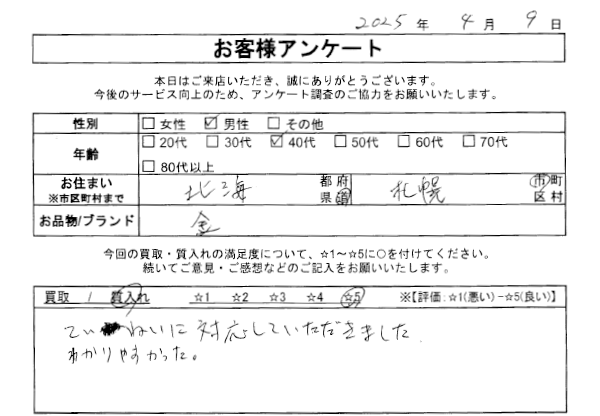 2025年 4月 9日
お客様アンケート
本日はご来店いただき、誠にありがとうございます。
今後のサービス向上のため、アンケート調査のご協力をお願いいたします。
性別 □女性 ☑男性 □その他
年齢 □20代 □30代 ☑40代 □50代 □60代 □70代
□80代以上
お住まい ※市区町村まで 北海 都府県道 札幌 市町区村
お品物/ブランド 金
今回の買取・質入れの満足度について、☆1～☆5に○を付けてください。
続いてご意見・ご感想などのご記入をお願いいたします。
買取 / 質入れ ☆1 ☆2 ☆3 ☆4 ☆5 ※【評価:☆1(悪い)-☆5(良い)】
ていねいに対応していただきました
わかりやすかった。